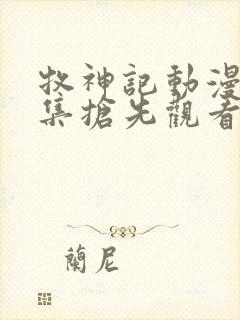 牧神記動漫
集搶先觀看
蘭尼